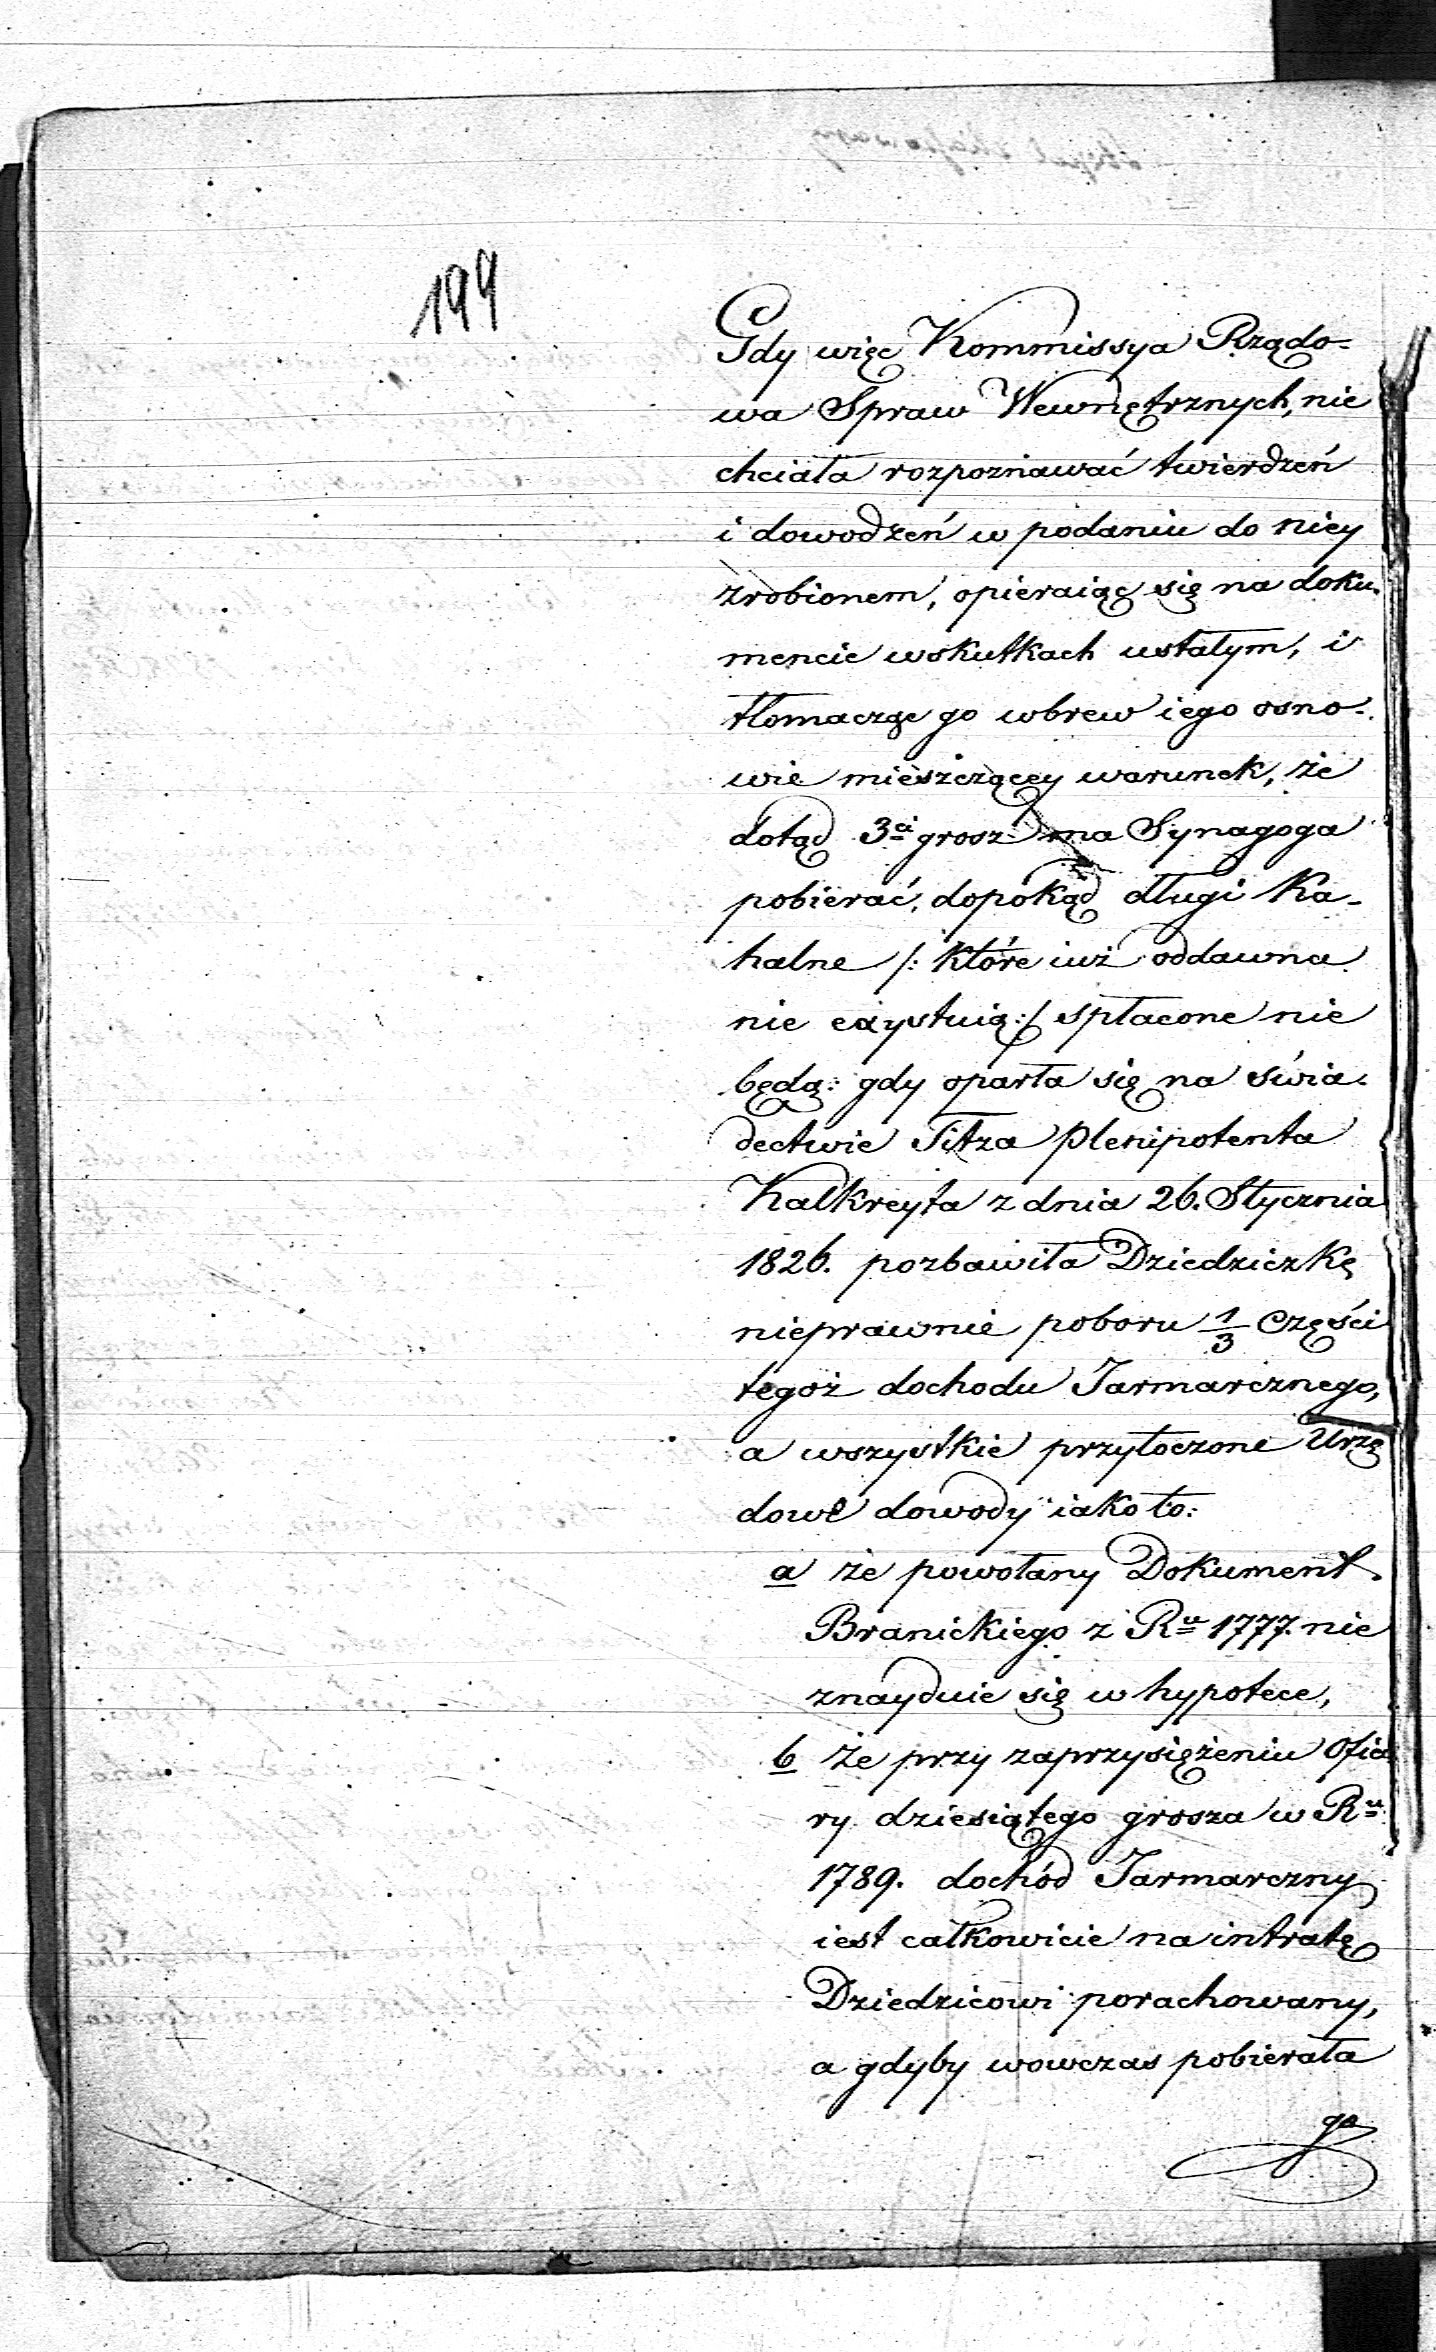 199
Gdy więc Kommissya Rządo-
wa Spraw Wewnętrznych, nie
chciała rozpoznawać twierdzeń
i dowodzeń w podaniu do niey
zrobionem, opieraiąc się na doku-
mencie w skutkach ustałym, i
tłomacząc go wbrew iego osno-
wie mieszczącey warunek, że
dotąd 3ci grosz ma Synagoga
pobierać, dopokąd długi Ka-
halne /: które iuż oddawna
nie exystuią :/ spłacone nie
będą: gdy oparła się na świa-
dectwie Titza Plenipotenta
Kalkreyta z dnia 26. Stycznia
1826. pozbawiła Dziedziczkę
nieprawnie poboru 1/3 Części
tegoż dochodu Jarmarcznego,
a wszystkie przytoczone Urzę
dowe dowody iako to:
a że powołany Dokument
Branickiego z Ru 1777. nie
znayduie się w hypotece,
b że przy zaprzysiężeniu Ofia
ry dziesiątego grosza w Ru
1789. dochód Jarmarczny
iest całkowicie na intratę
Dziedzicowi porachowany,
a gdyby wowczas pobierała
go